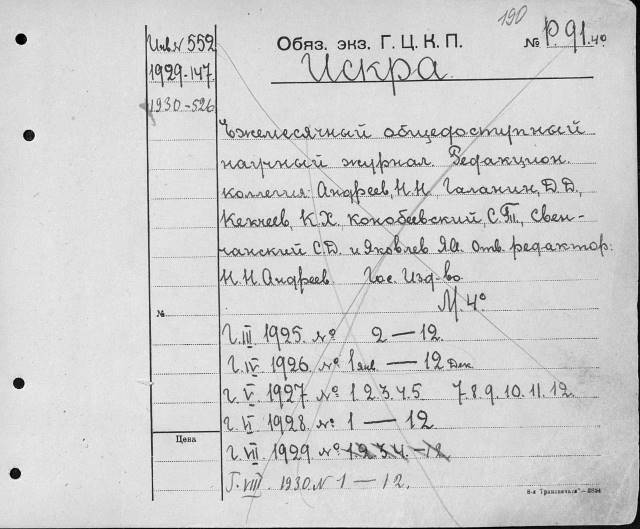 190
Инв. N 552
Обяз. экз. Г. Ц. К. П.
№ Р. 91. 4º
1929-147.
Искра.
1930-526
Ежемесячный общедоступный
научный журнал. Редакцион.
коллегия: Андреев, Н.Н. Галанин, Д.Д.,
Кекчеев, К.Х., Конобеевский, С.Т., Свен-
чанский С.Д. и Яковлев Я.А. Отв. редактор:
Н.Н. Андреев. Гос. Изд-во.
М. 4º
№
Г. III 1925. № 2 — 12.
Г. IV 1926. № 1 янв. — 12 Дек.
Г. V 1927. № 1. 2. 3. 4. 5. 7. 8. 9. 10. 11. 12.
Г. VI 1928. № 1 — 12
Цена
Г. VII 1929. № 1 2 3 4 — 12
Г. VIII. 1930. N 1 — 12.